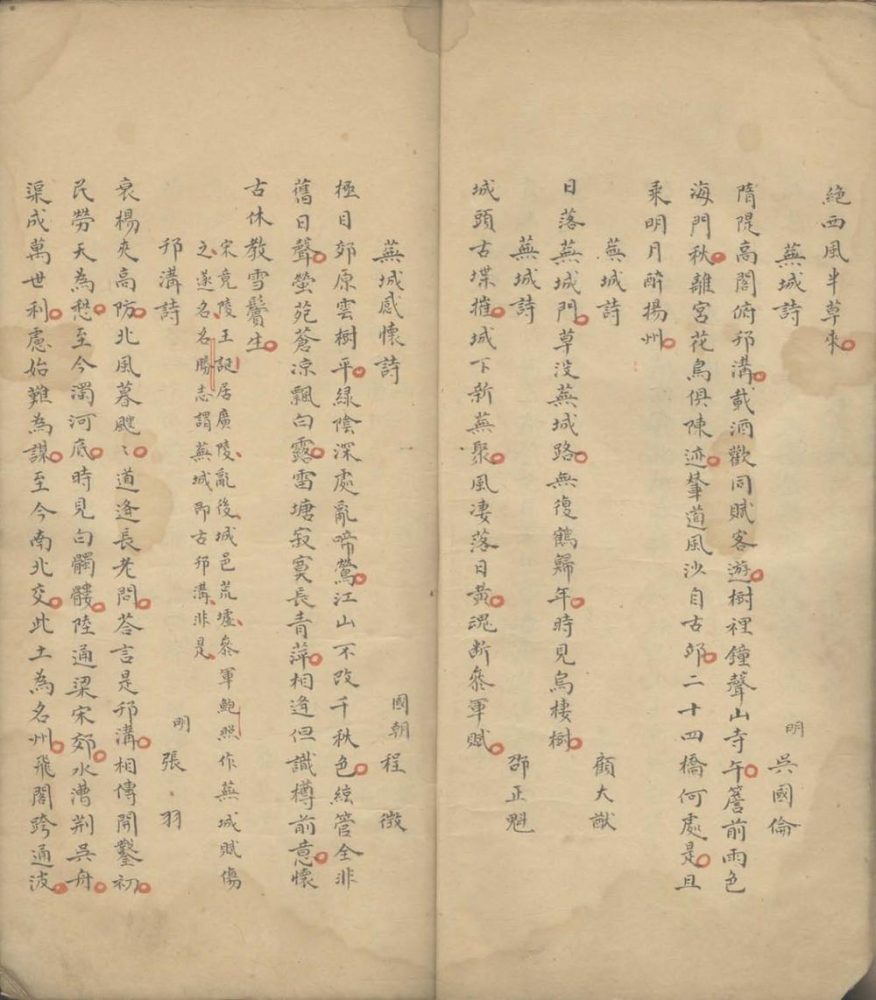 絶西風半草來
蕪城詩
明 吳國倫
隋隄高閣俯邗溝載酒歡同賦客遊樹裡鐘聲山寺午簷前雨色
海門秋離宮花鳥俱陳迹輦道風沙自古邱二十四橋何處是且
乘明月醉揚州
蕪城詩
顧大猷
日落蕪城門草没蕪城路無復鶴歸年時見烏棲樹
蕪城詩
邵正魁
城頭古堞摧城下新蕪聚風淒落日黃魂断叅軍賦
蕪城感懷詩
國朝 程徵
極目郊原雲樹平緑陰深處亂啼鶯江山不改千秋色絃管全非
舊日聲螢苑蒼凉飄白露雷塘寂寞長青萍相逢但識樽前意懷
古休教雪鬢生
宋竟陵王誕居廣陵亂後城邑荒墟叅軍鮑照作蕪城賦傷
之遂名名勝志謂蕪城即古邗溝非是
邗溝詩
明 張羽
衰楊夾高防北風暮颼〻道逢長老問荅言是邗溝相傳開鑿初
民勞天為愁至今濁河底時見白髑髏陸通梁宋郊水漕荆吳舟
渠成萬世利慮始難為謀至今南北交此土為名州飛閣跨通波